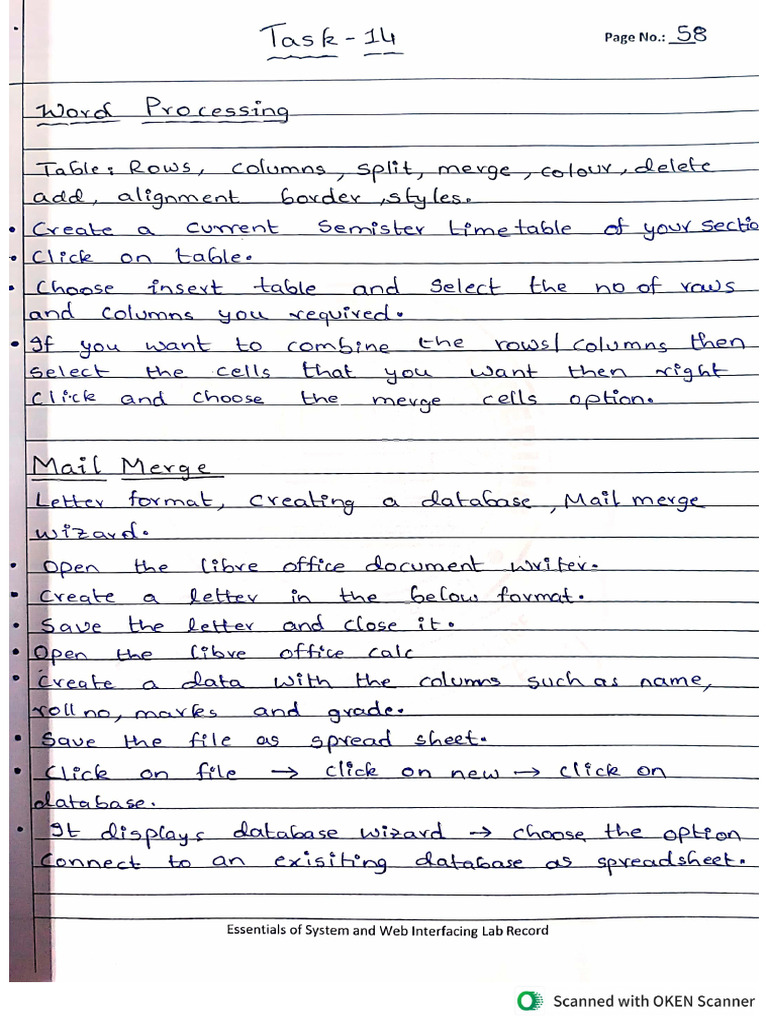 Task - 14
Page No.: 58
Word Processing
Table: Rows, columns, split, merge, colour, delete
add, alignment border, styles.
• Create a current Semister timetable of your sectio
• Click on table.
• Choose insert table and select the no of rows
and columns you required.
• If you want to combine the rows/columns then
select the cells that you want then right
click and choose the merge cells option.
Mail Merge
Letter format, creating a database, Mail merge
wizard.
• Open the libre office document writer.
• Create a letter in the below format.
• Save the letter and close it.
• Open the libre office calc
• Create a data with the columns such as name,
roll no, marks and grade.
• Save the file as spread sheet.
• Click on file → click on new → click on
database.
• It displays database wizard → choose the option
connect to an exisiting database as spreadsheet.
Essentials of System and Web Interfacing Lab Record
Scanned with OKEN Scanner